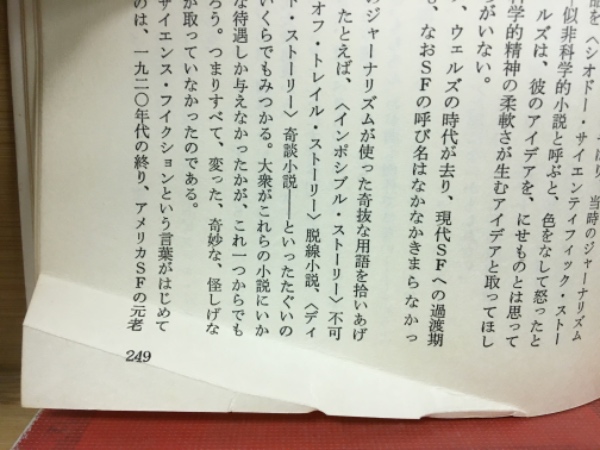 品を〈シオドー・サイエンティフィック・ストー
当時のジャーナリズム
似非科学的小説と呼ぶと、色をなして怒ったと
ルズは、彼のアイデアを、にせものとは思って
科学的精神の柔軟さが生むアイデアと取ってほし
がいない。
、ウェルズの時代が去り、現代SFへの過渡期
、なおSFの呼び名はなかなかきまらなかっ
のジャーナリズムが使った奇抜な用語を拾いあげ
たとえば、〈インポシブル・ストーリー〉不可
オフ・トレイル・ストーリー〉脱線小説、〈ディ
ト・ストーリー〉奇談小説――といったたぐいの
いくらでもみつかる。大衆がこれらの小説にいか
な待遇しか与えなかったか、これ一つからでも
ろう。つまりすべて、変った、奇妙な、怪しげな
が取っていなかったのである。
サイエンス・フイクションという言葉がはじめて
のは、一九二〇年代の終り、アメリカSFの元老
249